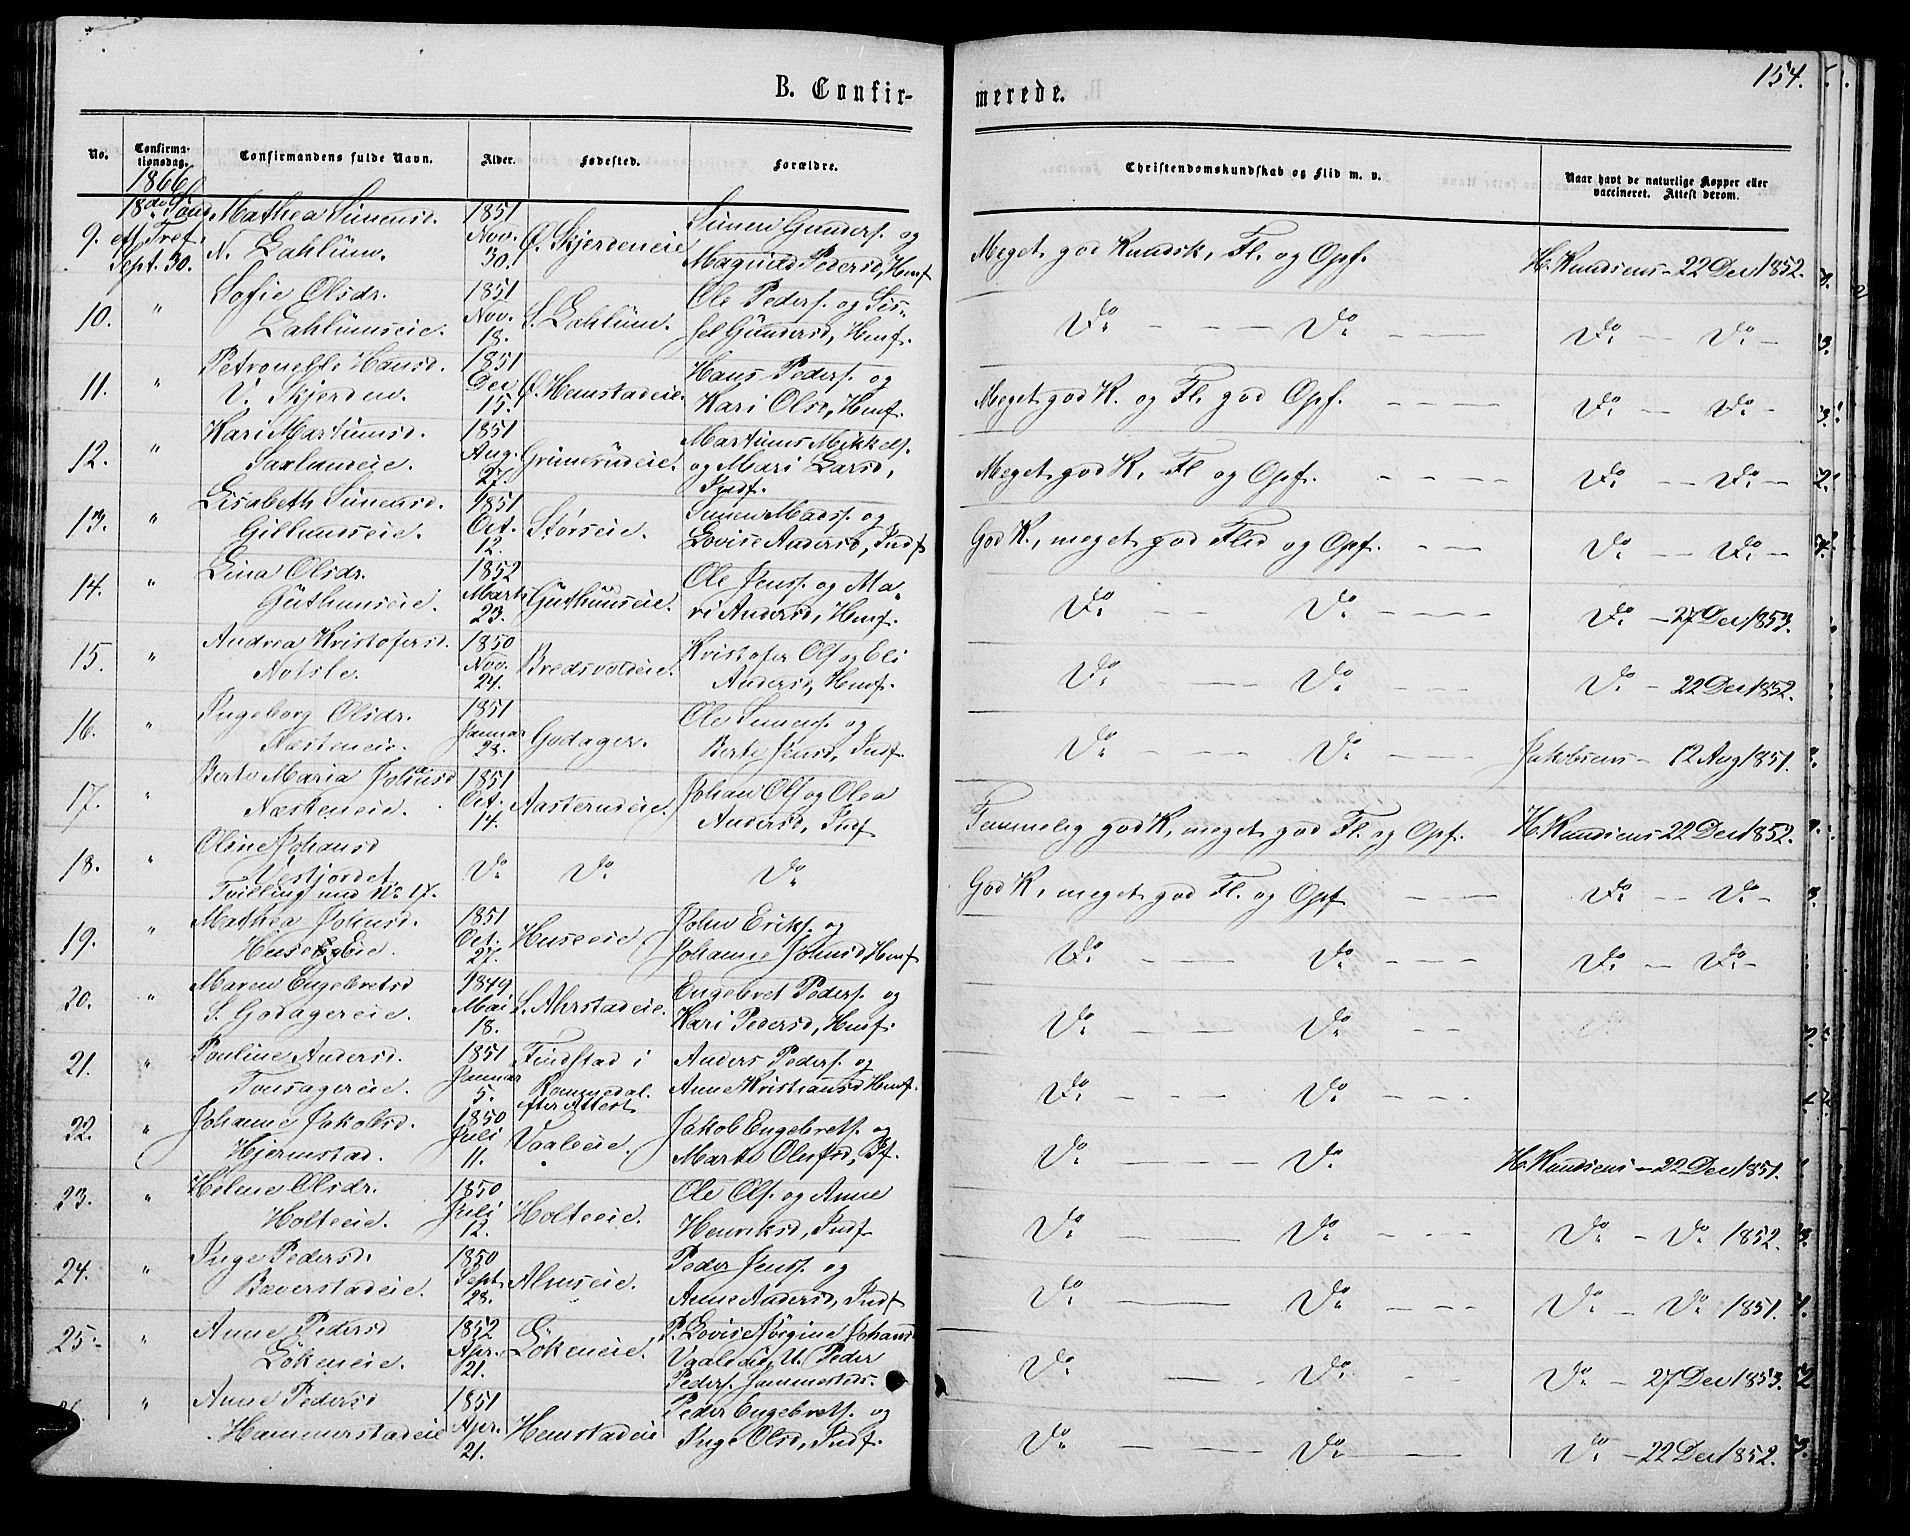 154.
B. Confirmerede.
No. Confirmationsdag. Confirmandens fulde Navn. Alder. Fødested. Forældre. Christendomskundskab og Flid m. v. Naar havt de naturlige Kopper eller vaccineret. Attest derom.
1866
9. 18de Sönd. ef. Tref. Sept. 30. Mathea Simensd. N. Lahlum. 1851 Nov. 30. Ø. Skjerdeneie Simen Gunders. og Magnild Pedersd, Hmf. Meget god Kundsk, Fl. og Opf. H. Knudsens 22 Dec 1852.
10. " Sofie Olsdr. Lahlumseie. 1851 Nov. 18. S. Lahlum. Ole Peders. og Sissel Gundersd, Hmf. Do — Do — Do — Do —
11. " Petronelle Hansd. V. Skjerden. 1851 Dec 15. Ø. Hemstadeie. Hans Peders. og Kari Olsd, Hmf. Meget god K. og Fl. god Opf. — Do — Do —
12. " Kari Martinusd. Saxlundeie. 1851 Aug. 27. Grimerudeie. Martinus Mikkels. og Mari Larsd, Indf. Meget god K, Fl og Opf. — Do — Do —
13. " Lisabeth Simensd. Gillundseie. 1851 Oct. 12. Störseie. Simen Mads. og Lovise Andersd, Indf God K., meget god Flid og Opf. — Do — Do —
14. " Lina Olsdr. Guthusseie. 1852 Marts 23. Guthusseie. Ole Jens. og Mari Andersd, Hmf. Do — Do — Do — 27 Dec 1853.
15. " Andrea Kristofersd. Notsle. 1850 Nov. 24. Bredsvoldeie. Kristofer Ols. og Eli Andersd, Hmf. Do — Do — Do — 22 Dec 1852.
16. " Ingeborg Olsdr. Næsteneie. 1851 Januar 23. Godager. Ole Simens. og Berte Jensd, Indf Do — Do — Jakobsens — 12 Aug 1851.
17. " Berte Maria Johansd Næsteneie. 1851 Oct. 14. Aasterudeie. Johan Ols. og Olea Andersd, Indf Temmelig god K, meget god Fl. og Opf. H. Knudsens 22 Dec 1852.
18. " Oline Johansd Vestjordet Tvilling med No 17. Do Do Do God K, meget god Fl. og Opf — Do — Do —
19. " Mathea Johnsd. Huse Eie. 1851 Oct. 27. Huseeie John Eriks. og Johanne Johnsd, Hmf Do — Do — Do — Do —
20. " Maren Engebretsd S. Godagereie. 1849 Mai 18. S. Ahrstadeie. Engebret Peders. og Kari Pedersd, Hmf. Do — Do —
21. " Pouline Andersd. Tonsagereie. 1851 Januar 5. Findstad i Romedal. efter Attest Anders Peders. og Anne Kristiansd Hmf. Do — Do —
22. " Johanne Jakobsd. Hjermstad. 1850 Juli 11. Vaaleeie. Jakob Engebrets. og Marte Olsd, Bf. Do — Do H. Knudsens — 22 Dec 1851.
23. " Helene Olsdr. Holteeie. 1850 Juli 12. Holteeie. Ole Ols. og Anne Henriksd, Indf Do — Do — Do — Do 1852.
24. " Inge Pedersd. Bæverstadeie. 1850 Sept 28. Almseie. Peder Jens. og Anne Andersd, Indf Do — Do — Do — Do 1851.
25. " Anne Pedersd Lökeneie. 1852 Apr. 21. Lökeneie. P. Lovise Jörgine Johansd Vaaleeie, U. Peder Peders. Do — Do — Do — 27 Dec 1853.
" Anne Pedersd Hammerstadeie 1851 Apr. 21. Hemstadeie Peder Engebrets. og Inge Olsd, Indf. Do — Do — Do — 22 Dec 1852.